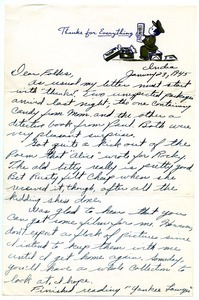 Thanks for Everything
India
January 29, 1945
Dear Folks,
As usual my letters must start
with "thanks". Two unexpected packages
arrived last night, the one containing
candy from Mom and the other a
detective book from Paul. Both were
very pleasant surprises.
Got quite a kick out of the
Poem that Alice wrote for Rocky.
The old bitty really is pretty good
Bet Rusty will chirp when she
received it, though, after all the
kidding she's done.
Was glad to know that you
can get some for me
don't expect a flock of pictures since
I intend to keep them with me
until I get home again. Someday
you'll have a whole collection to
look at, I hope.
Finished reading "Yankee Lawyer"